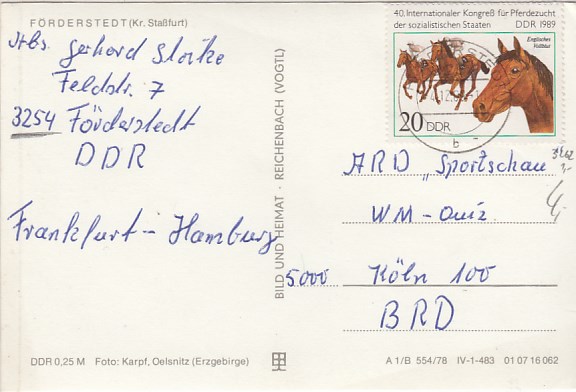 FÖRDERSTEDT (Kr. Staßfurt)
Abs. Gerhard Storke
Feldstr. 7
3254 Förderstedt
DDR
Frankfurt - Hamburg
BILD UND HEIMAT · REICHENBACH (VOGTL)
40. Internationaler Kongreß für Pferdezucht
der sozialistischen Staaten DDR 1989
Englisches
Vollblut
20 DDR
b
ARD „Sportschau
WM-Quiz
5000 Köln 100
BRD
DDR 0,25 M Foto: Karpf, Oelsnitz (Erzgebirge)
A 1/B 554/78 IV-1-483 01 07 16 062